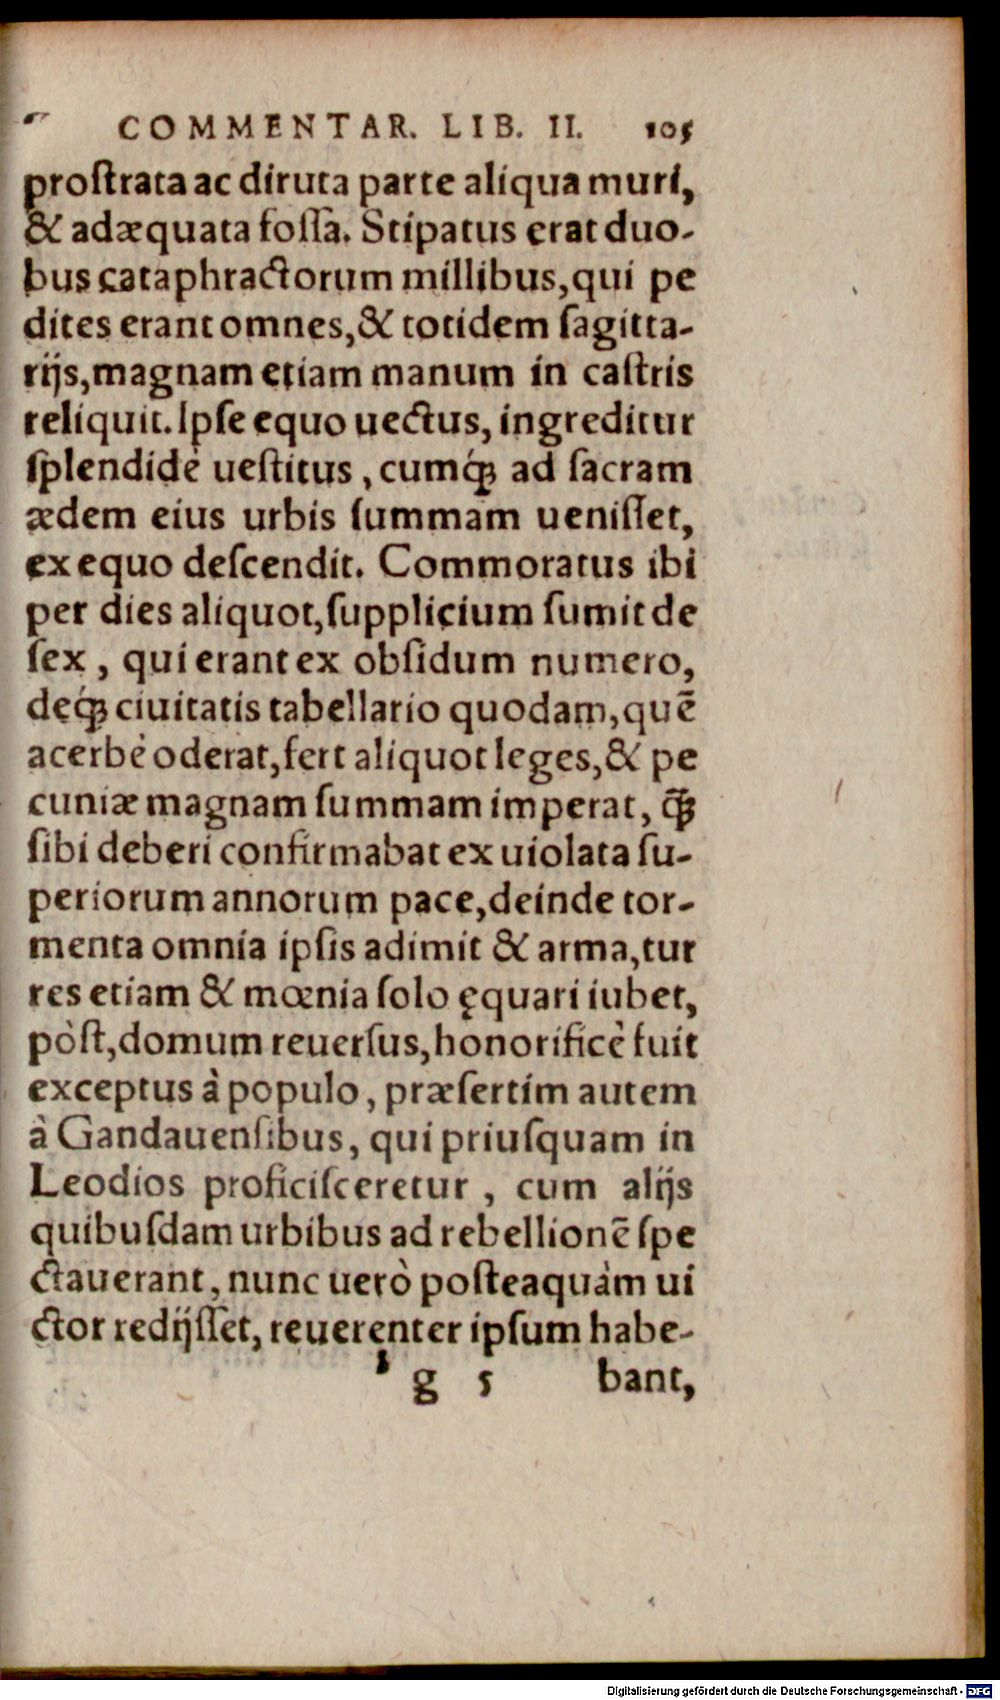 COMMENTAR. LIB. II. 105
proſtrata ac diruta parte aliqua muri,
& adæquata foſſa. Stipatus erat duo-
bus cataphractorum millibus, qui pe
dites erant omnes, & totidem ſagitta-
rijs, magnam etiam manum in caſtris
reliquit. Ipſe equo uectus, ingreditur
ſplendidè ueſtitus, cumq́ꝫ ad ſacram
ædem eius urbis ſummam ueniſſet,
ex equo deſcendit. Commoratus ibi
per dies aliquot, ſupplicium ſumit de
ſex, qui erant ex obſidum numero,
deq́ꝫ ciuitatis tabellario quodam, quē
acerbè oderat, fert aliquot leges, & pe
cuniæ magnam ſummam imperat, q̄ꝫ
ſibi deberi confirmabat ex uiolata ſu-
periorum annorum pace, deinde tor-
menta omnia ipſis adimit & arma, tur
res etiam & mœnia ſolo ęquari iubet,
pòſt, domum reuerſus, honorificè fuit
exceptus à populo, præſertim autem
à Gandauenſibus, qui priuſquam in
Leodios proficiſceretur, cum alijs
quibuſdam urbibus ad rebellionē ſpe
ctauerant, nunc uerò poſteaquàm ui
ctor redijſſet, reuerenter ipſum habe-
g 5 bant,
Digitalisierung gefördert durch die Deutsche Forschungsgemeinschaft - DFG